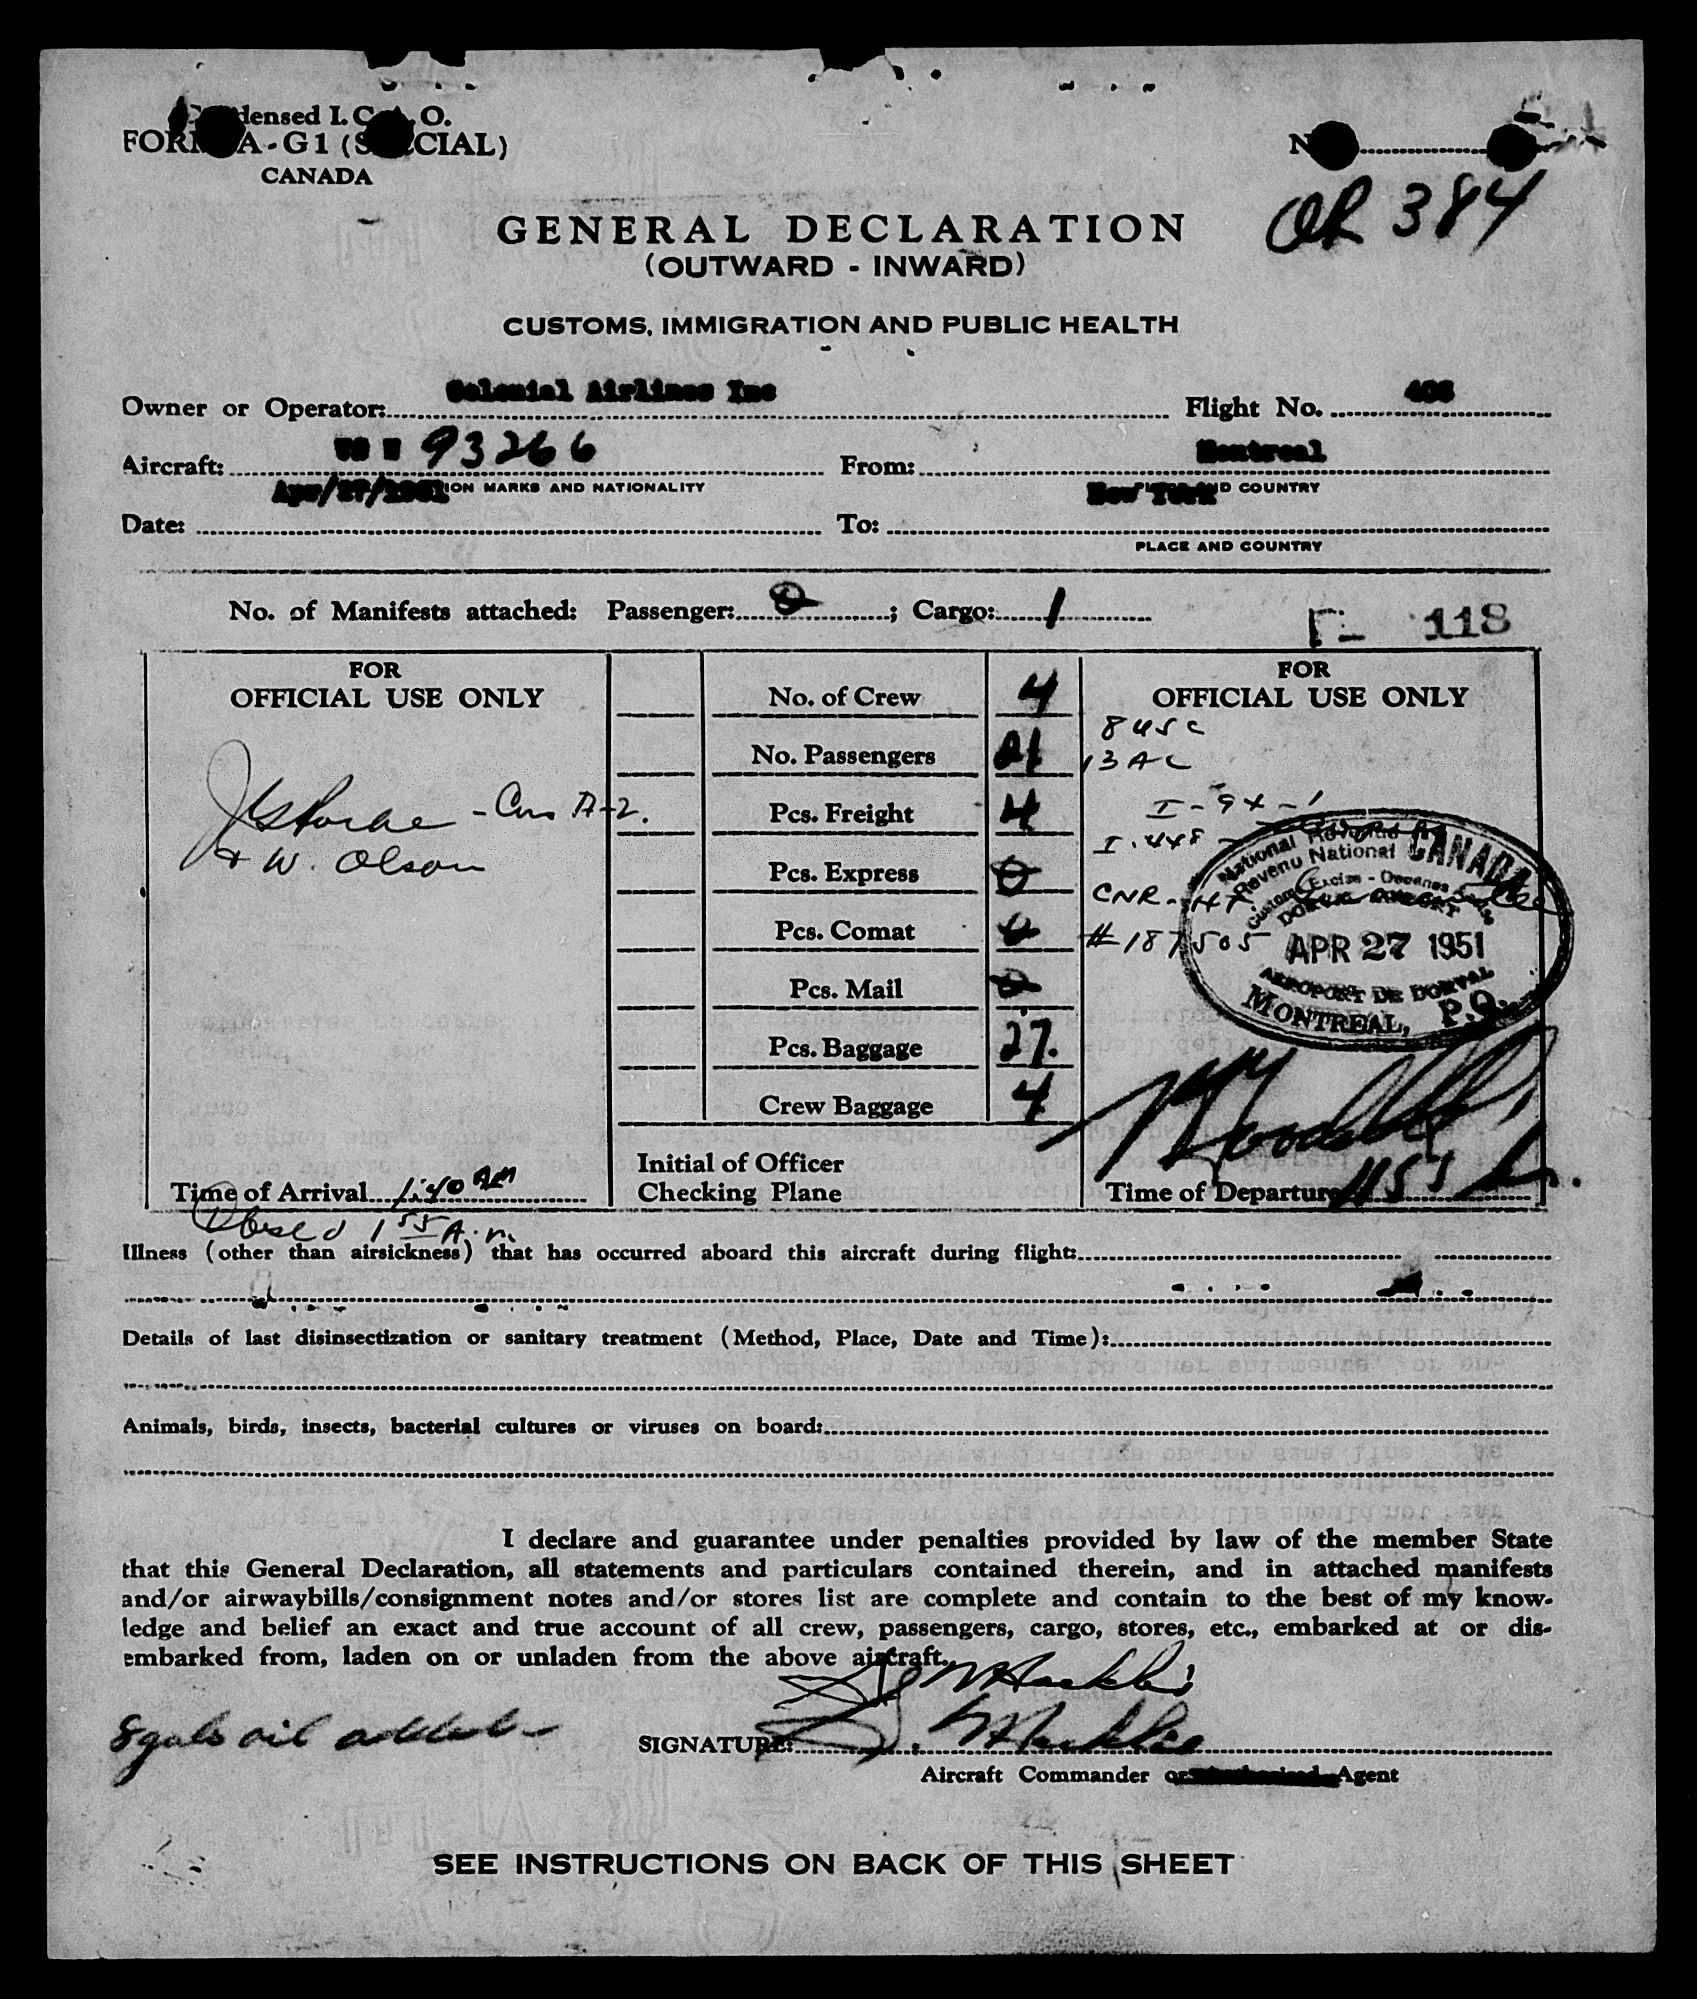 Condensed I.C.A.O.
FORM A-G1 (SPECIAL)
CANADA
No.
OR 384
GENERAL DECLARATION
(OUTWARD - INWARD)
CUSTOMS, IMMIGRATION AND PUBLIC HEALTH
Owner or Operator: Colonial Airlines Inc Flight No.
Aircraft: US N 93266 From: Montreal
ION MARKS AND NATIONALITY AND COUNTRY
Date: Apr/27/1951 To: New York
PLACE AND COUNTRY
No. of Manifests attached: Passenger: 0; Cargo: 1
118
FOR
OFFICIAL USE ONLY
No. of Crew 4
No. Passengers 21
Pcs. Freight 4
Pcs. Express 0
Pcs. Comat 0
Pcs. Mail 0
Pcs. Baggage 27.
Crew Baggage 4
Initial of Officer
Checking Plane
- Cus A-2.
& W. Olson
Time of Arrival 1:40 AM
Closed 1 55 A.m.
FOR
OFFICIAL USE ONLY
8 USC
13 AC
I-94-1
I-448
CNR
#187505
National Revenue
Revenu National
CANADA
Customs Excise - Douanes Accise
DORVAL AIRPORT
APR 27 1951
AEROPORT DE DORVAL
MONTREAL, P.Q.
Time of Departure 1155
Illness (other than airsickness) that has occurred aboard this aircraft during flight:
Details of last disinsectization or sanitary treatment (Method, Place, Date and Time):
Animals, birds, insects, bacterial cultures or viruses on board:
I declare and guarantee under penalties provided by law of the member State
that this General Declaration, all statements and particulars contained therein, and in attached manifests
and/or airwaybills/consignment notes and/or stores list are complete and contain to the best of my know-
ledge and belief an exact and true account of all crew, passengers, cargo, stores, etc., embarked at or dis-
embarked from, laden on or unladen from the above aircraft.
8 gals oil added
SIGNATURE:
Aircraft Commander or Agent
SEE INSTRUCTIONS ON BACK OF THIS SHEET